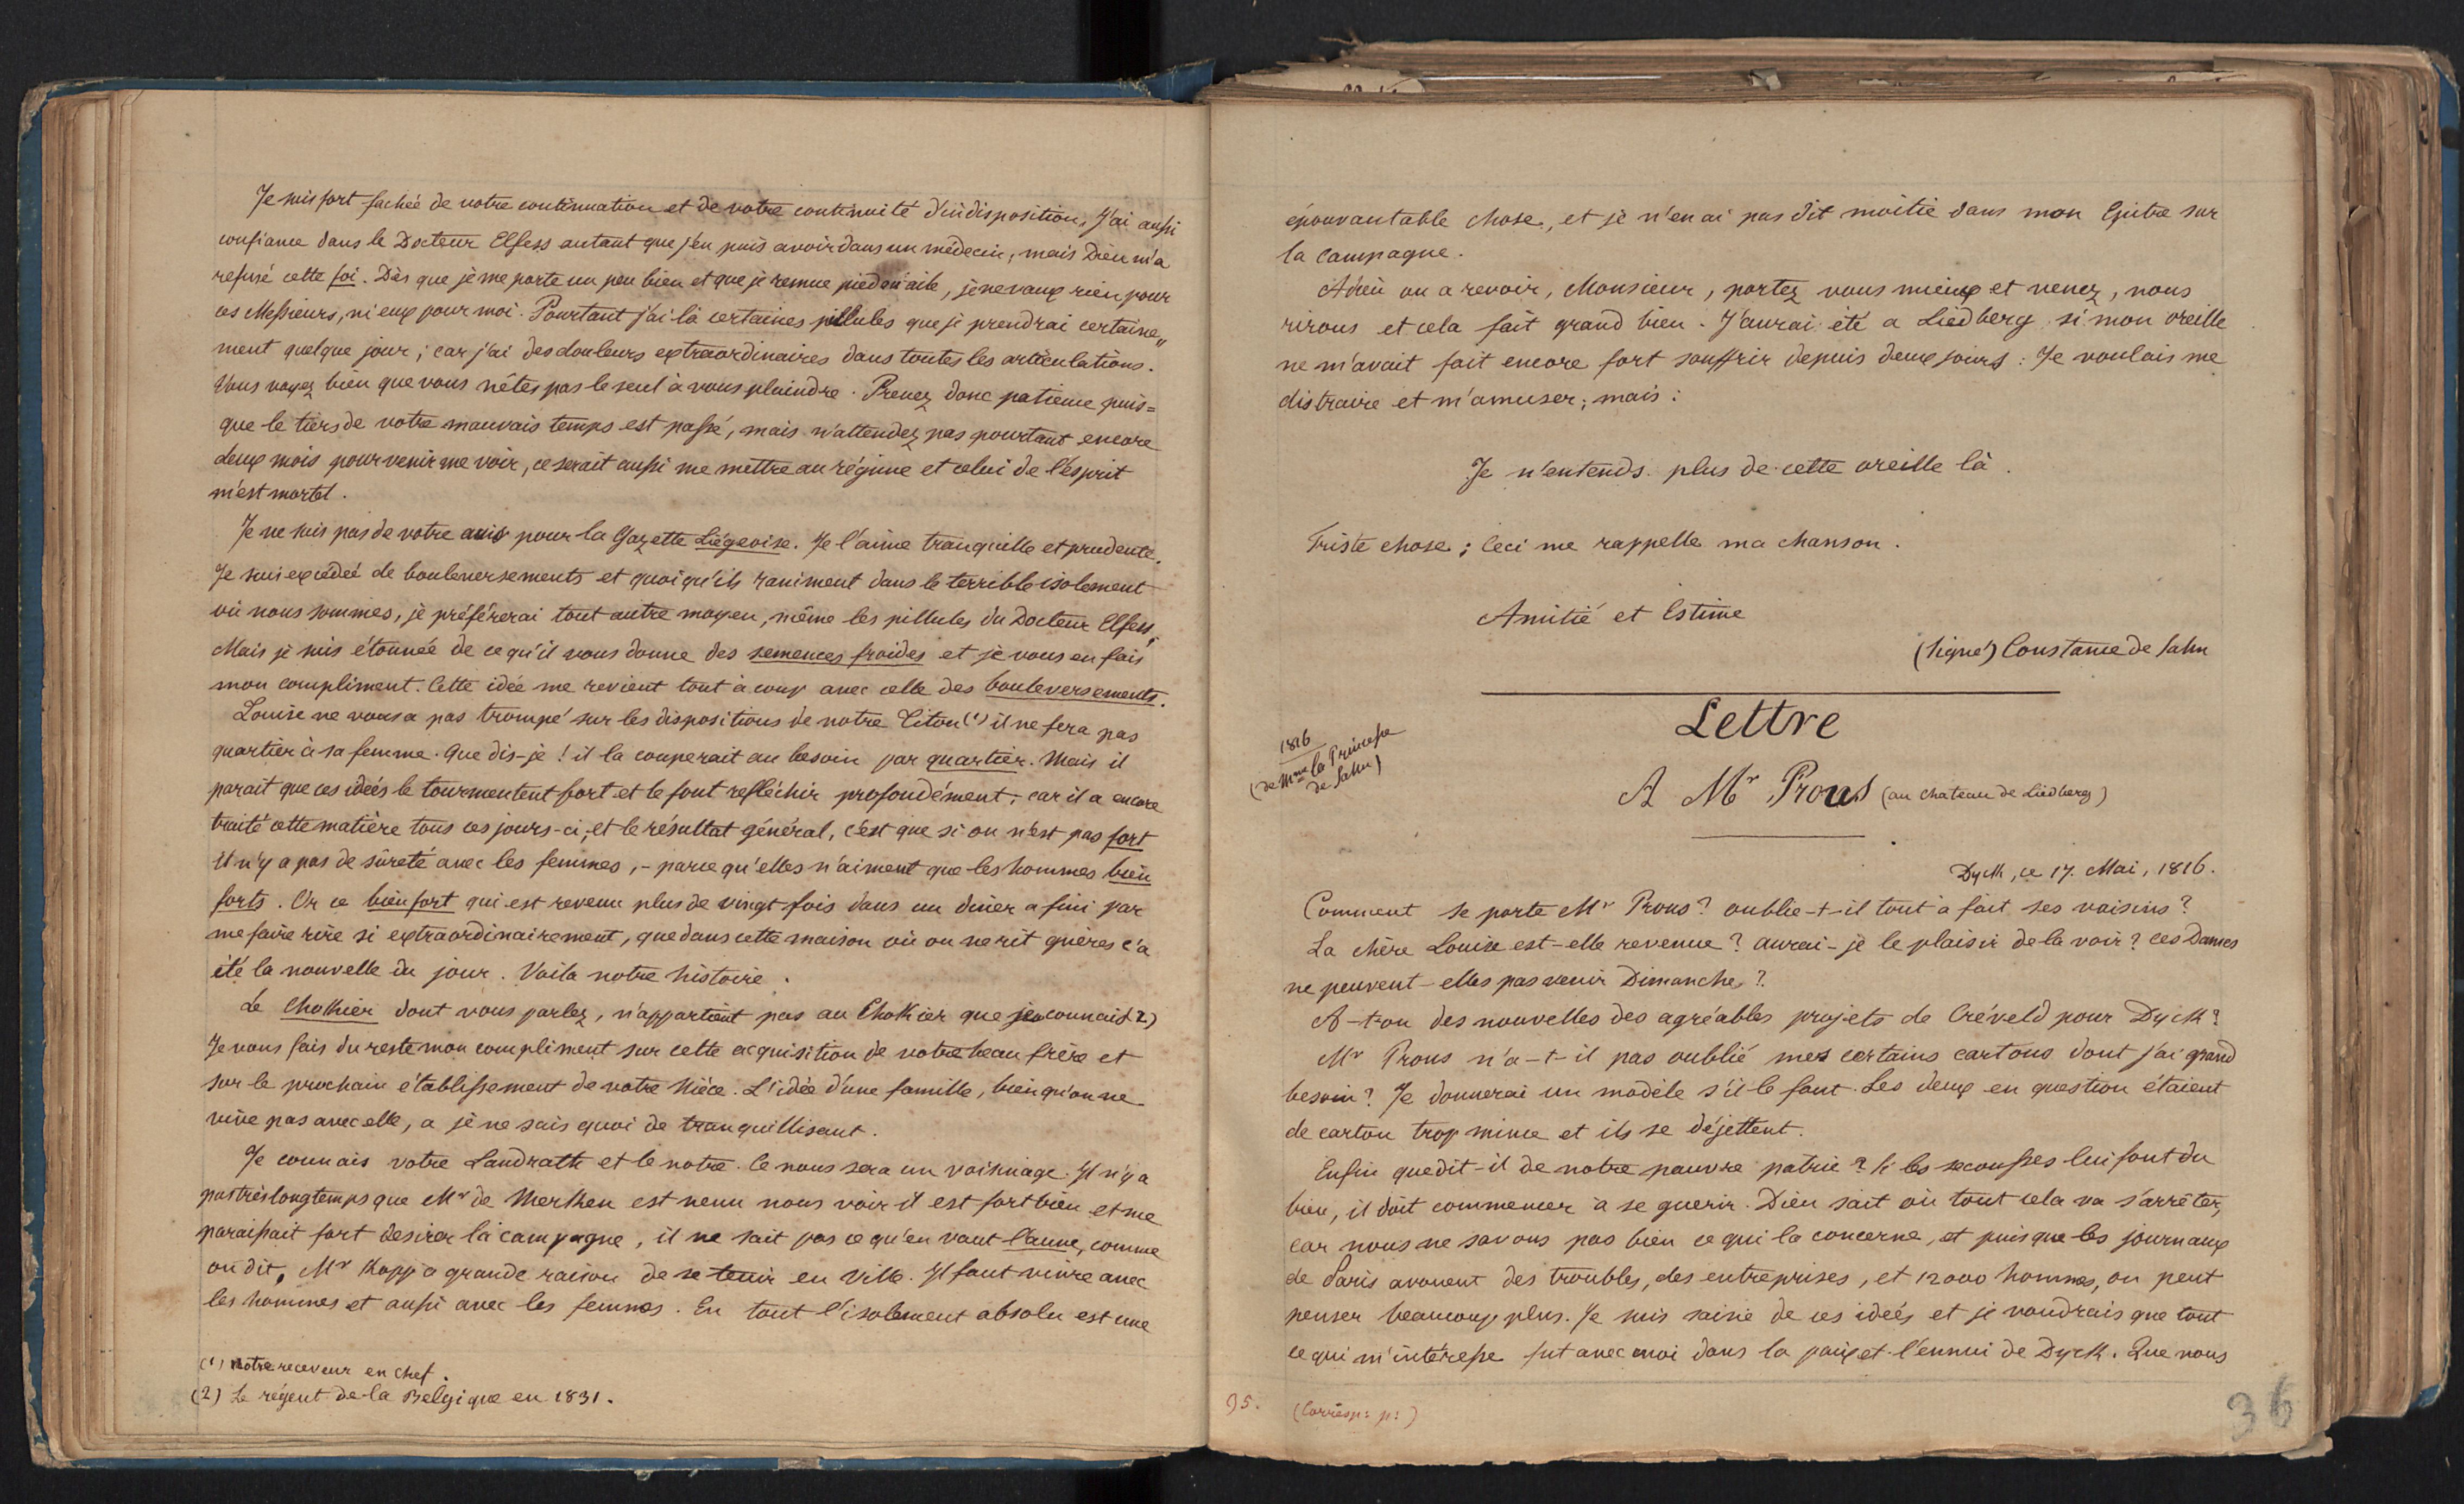 Je suis fort fachée de votre continuation et de votre continuité d'indisposition, J'ai aussi
confiance dans le Docteur Elfess autant que j'en puis avoir dans un médecin, mais Dieu m'a
refusé cette foi. Dès que je me porte un peu bien et que je remue pied ou aile, je ne vaux rien pour
ces Messieurs, ni eux pour moi. Pourtant j'ai là certaines pillules que je prendrai certaine„
ment quelque jour; car j'ai des douleurs extraordinaires dans toutes les articulations.
Vous voyez bien que vous n'êtes pas le seul à vous plaindre. Prenez donc patience puis=
que le tiers de votre mauvais temps est passé, mais n'attendez pas pourtant encore
deux mois pour venir me voir, ce serait aussi me mettre au régime et celui de l'esprit
m'est mortel.
Je ne suis pas de votre avis pour la Gazette Liégeoise. Je l'aime tranquille et prudente.
Je suis excédée de boulenersements et quoiqu'ils raniment dans le terrible isolement
où nous sommes, je préférerai tout autre moyen, même les pillules du Docteur Elfess.
Mais je suis étonnée de ce qu'il vous donne des semences froides et je vous en fais
mon compliment. Cette idée me revient tout à coup avec celle des bouleversements.
Louise ne vous a pas trompé sur les dispositions de notre Titon (1) il ne fera pas
quartier à sa femme. Que dis-je! il la couperait au besoin par quartier. Mais il
parait que ces idées le tourmentent fort et le font refléchir profondément, car il a encore
traité cette matière tous ces jours-ci, et le résultat général, c'est que si on n'est pas fort
il n'y a pas de sûreté avec les femmes, - parce qu'elles n'aiment que les hommes bien
forts. Or ce bien fort qui est revenu plus de vingt fois dans un diner a fini par
me faire rire si extraordinairement, que dans cette maison où on ne rit guères c'a
été la nouvelle du jour. Voila notre histoire.
Le Chokier dont vous parlez, n'appartient pas au Chokier que je connais 2)
Je vous fais du reste mon compliment sur cette acquisition de votre beau frère et
sur le prochain établissement de votre Nièce. L'idée d'une famille, bien qu'on ne
vive pas avec elle, a je ne sais quoi de tranquillisant.
Je connais votre Landrath et le notre. Ce nous sera un voisinage. Il n'y a
pas très longtemps que Mr de Merken est venu nous voir il est fort bien et me
paraissait fort desirer la campagne, il ne sait pas ce qu'en vaut l'aune, comme
on dit, Mr Kopp a grande raison de se tenir en Ville. Il faut vivre avec
les hommes et aussi avec les femmes. En tout l'isolement absolu est une
(1) Notre receveur en chef.
(2) Le régent de la Belgique en 1831.
épouvantable chose, et je n'en ai pas dit moitié dans mon Epitre sur
la Campagne.
Adieu ou a revoir, Monsieur, portez vous mieux et venez, nous
rirons et cela fait grand bien. J'aurai été a Liedberg si mon oreille
ne m'avait fait encore fort souffrir depuis deux jours: Je voulais me
distraire et m'amuser; mais:
Je n'entends plus de cette oreille là.
Triste chose; Ceci me rappelle ma chanson.
Amitié et Estime
(Signé) Constance de Salm
Lettre
1816
(de Mme la Princesse
de Salm)
A Mr Prous (au chateau de Liedberg)
Dyck, ce 17. Mai, 1816.
Comment se porte Mr Prous? oublie-t-il tout à fait ses voisins?
La chère Louise est-elle revenue? aurai-je le plaisir de la voir? ces Dames
ne peuvent-elles pas venir Dimanche?
A-t-on des nouvelles des agréables projets de Créveld pour Dyck?
Mr Prous n'a-t-il pas oublié mes certains cartons dont j'ai grand
besoin? Je donnerai un modèle s'il le faut. Les deux en question étaient
de carton trop mince et ils se déjettent.
Enfin que dit-il de notre pauvre patrie? Si les secousses lui font du
bien, il doit commencer à se guerir. Dieu sait où tout cela va s'arrêter,
car nous ne savons pas bien ce qui la concerne, et puisque les journaux
de Paris avouent des troubles, des entreprises, et 12000 hommes, on peut
penser beaucoup plus. Je suis saisie de ces idées et je voudrais que tout
ce qui m'intéresse fut avec moi dans la paix et l'ennui de Dyck. Que nous
35. (Corresp: p: )
36